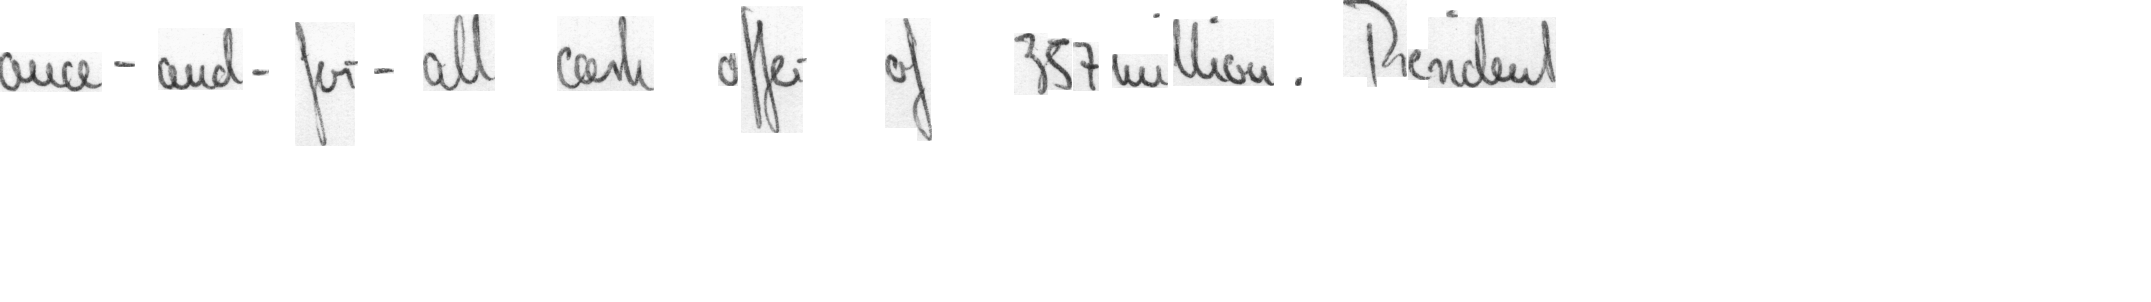 once-and-for-all cash offer of 357 million. President